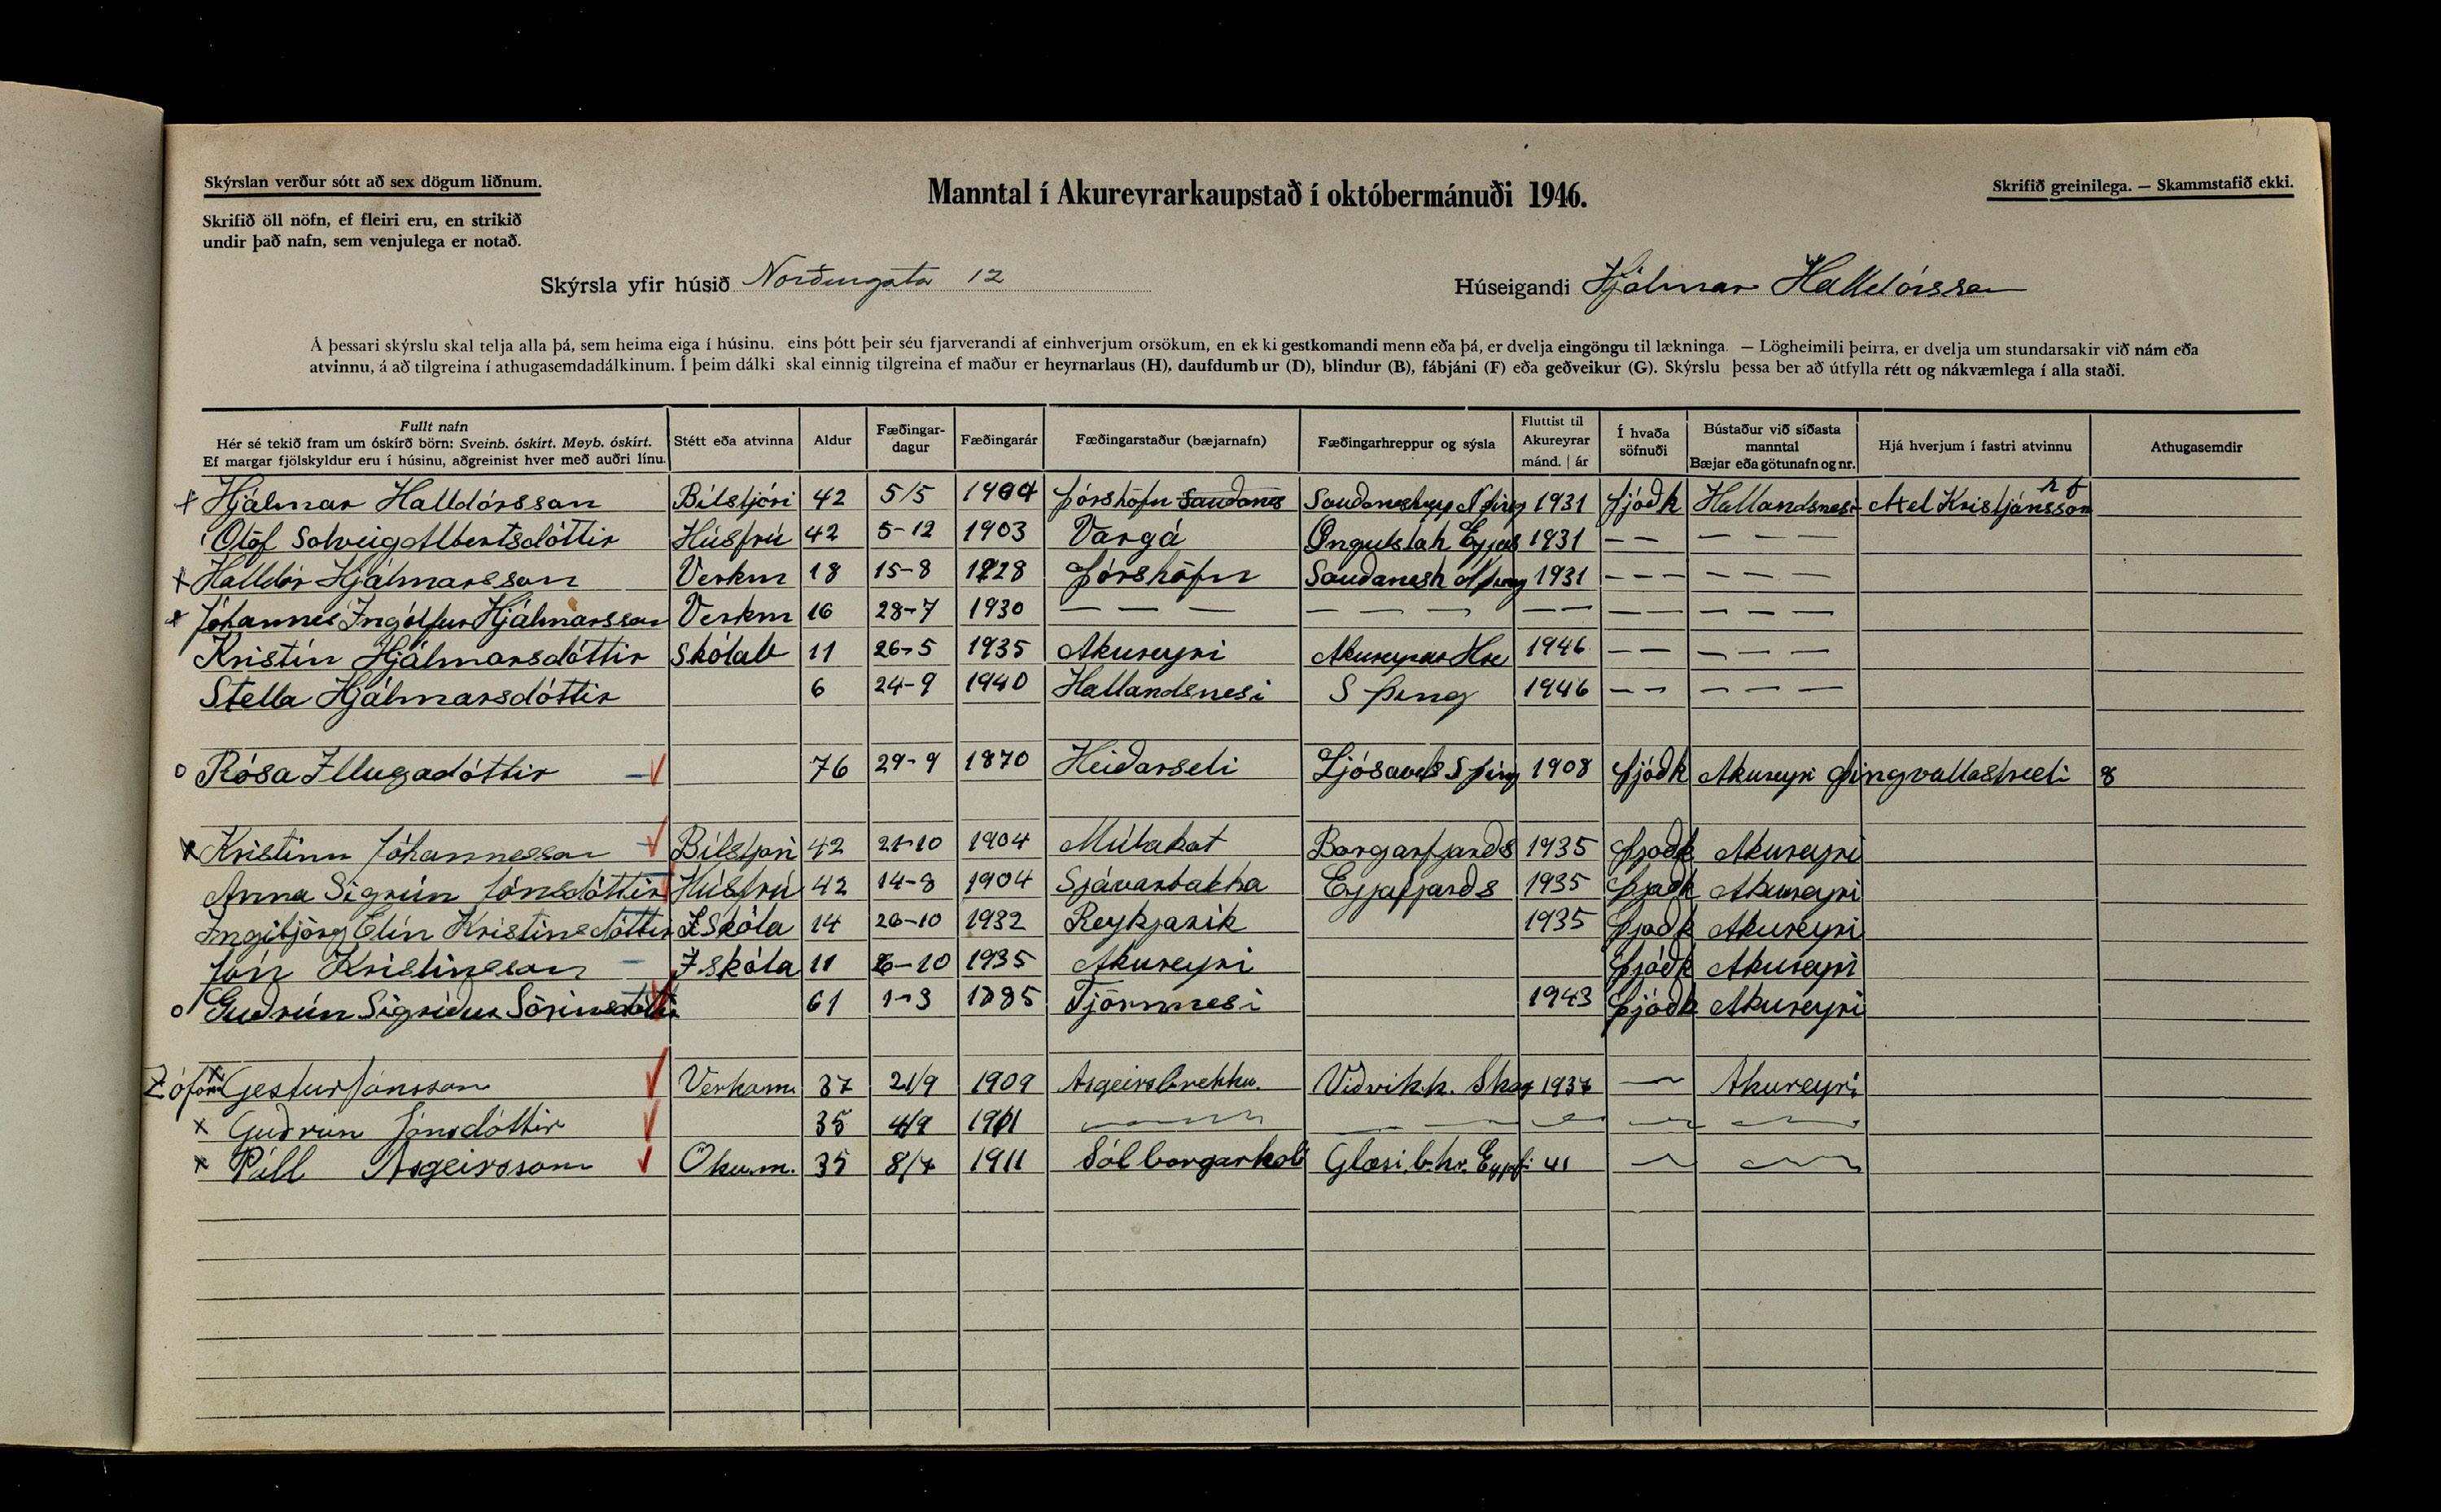 Skýrslan verður sótt að sex dögum liðnum.
Skrifið öll nöfn, ef fleiri eru, en strikið
undir það nafn, sem venjulega er notað.
Manntal í Akureyrarkaupstað í októbermánuði 1946.
Skrifið greinilega. — Skammstafið ekki.
Skýrsla yfir húsið Norðurgata 12
Húseigandi Hjálmar Halldórsson
Á þessari skýrslu skal telja alla þá, sem heima eiga í húsinu, eins þótt þeir séu fjarverandi af einhverjum orsökum, en ekki gestkomandi menn eða þá, er dvelja eingöngu til lækninga. — Lögheimili þeirra, er dvelja um stundarsakir við nám eða
atvinnu, á að tilgreina í athugasemdadálkinum. Í þeim dálki skal einnig tilgreina ef maður er heyrnarlaus (H), daufdumbur (D), blindur (B), fábjáni (F) eða geðveikur (G). Skýrslu þessa ber að útfylla rétt og nákvæmlega í alla staði.
Fullt nafn
Hér sé tekið fram um óskírð börn: Sveinb. óskírt. Meyb. óskírt.
Ef margar fjölskyldur eru í húsinu, aðgreinist hver með auðri línu.
Stétt eða atvinna
Aldur
Fæðingar-
dagur
Fæðingarár
Fæðingarstaður (bæjarnafn)
Fæðingarhreppur og sýsla
Fluttist til
Akureyrar
mánd. | ár
Í hvaða
söfnuði
Bústaður við síðasta
manntal
Bæjar eða götunafn og nr.
Hjá hverjum í fastri atvinnu
Athugasemdir
x Hjálmar Halldórsson Bílstjóri 42 5/5 1904 Þórshöfn Sauðanes Sauðaneshrepp N Þing 1931 Þjóðk Hallandsnesi Axel Kristjánsson h f
Ólöf Solveig Albertsdóttir Húsfrú 42 5-12 1903 Vargá Öngulstah Eyjas 1931 — — — — —
x Halldór Hjálmarsson Verkm 18 15-8 1928 Þórshöfn Sauðanesh N Þing 1931 — — — — — —
x Jóhannes Ingólfur Hjálmarsson Verkm 16 28-7 1930 — — — — — — — — — — — — —
Kristín Hjálmarsdóttir Skólab 11 26-5 1935 Akureyri Akureyrar Hre 1946 — — — — —
Stella Hjálmarsdóttir 6 24-9 1940 Hallandsnesi S Þing 1946 — — — — —
o Rósa Illugadóttir 76 29-9 1870 Heiðarseli Ljósavds S Þing 1908 Þjóðk Akureyri Þingvallastræti 8
x Kristinn Jóhannesson Bílstjori 42 21-10 1904 Múlakot Borgarfjards 1935 Þjoðk Akureyri
Anna Sigrún Jónsdóttir Húsfrú 42 14-8 1904 Sjávarbakka Eyjafjarðs 1935 Þjoðk Akureyri
Ingibjörg Elín Kristinsdóttir Í Skóla 14 26-10 1932 Reykjavik 1935 Þjoðk Akureyri
Jón Kristinsson Í skóla 11 6-10 1935 Akureyri Þjóðk Akureyri
o Guðrún Sigríður Sörinsdóttir 61 1-3 1885 Tjörnnesi 1943 Þjóðk Akureyri
x Gestur Jónsson Verkam. 37 21/9 1909 Asgeirsbrekku. Viðvik.h. Skag 1937 — Akureyri
x Guðrún Jónsdóttir 35 4/9 1911
x Páll Asgeirsson Ökum. 35 8/7 1911 Sólborgarhóli Glæsib.hr. Eyjafj 41